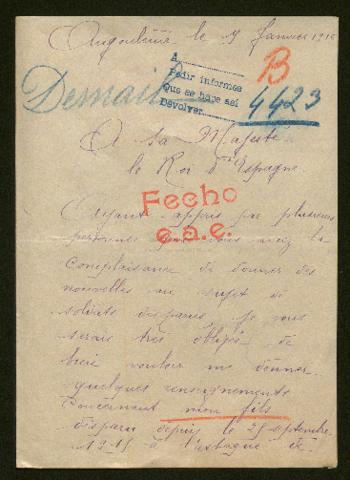 Angoulême le 9 Janvier 1916
A
Pedir informes
Que se hape así
Devolver
B
4423
A Sa Majesté
le Roi d'Espagne
Fecho
e.a.e.
Ayant appris par plusieurs
personnes que vous avez la
Complaisance de donner des
nouvelles au sujet de
soldats disparus, je vous
serais très obligée de
bien vouloir me donner
quelques renseignements
Concernant mon fils
disparu depuis le 25 septembre
1915 à l'attaque de